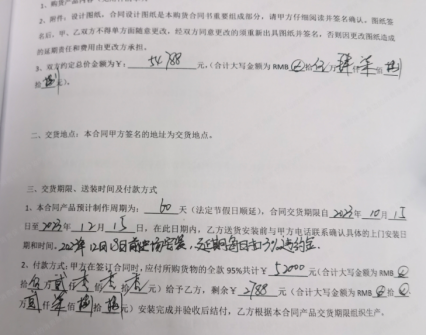 2、附件：设计图纸，合同设计图纸是本购货合同书重要组成部分，请甲方仔细阅读并签名确认，图纸签
名后，甲、乙双方不得单方面随意更改，经双方同意更改的须重新出具图纸并签名，否则因更改图纸造成
的延期责任和费用由更改方承担。
3、双方约定总价金额为￥：54788元，（合计大写金额为 RMB 拾伍万肆仟柒佰捌
拾捌元）。
二、交货地点：本合同甲方签名的地址为交货地点。
三、交货期限、送装时间及付款方式
1、本合同产品预计制作周期为：60天（法定节假日顺延），合同交货期限自2023年10月15
日至2023年12月15日，在此日期内，乙方送货安装前与甲方电话联系确认具体的上门安装日
期和时间。2023年12月18日前进场安装，
2、付款方式：甲方在签订合同时，应付所购货物的全款 95%共计￥52000元（合计大写金额为 RMB
拾伍万贰仟零佰零拾零元）给于乙方，剩余￥2788元（合计大写金额为 RMB 拾
万贰仟柒佰捌拾捌元）安装完成并验收后结付，乙方根据本合同产品交货期限组织生产。